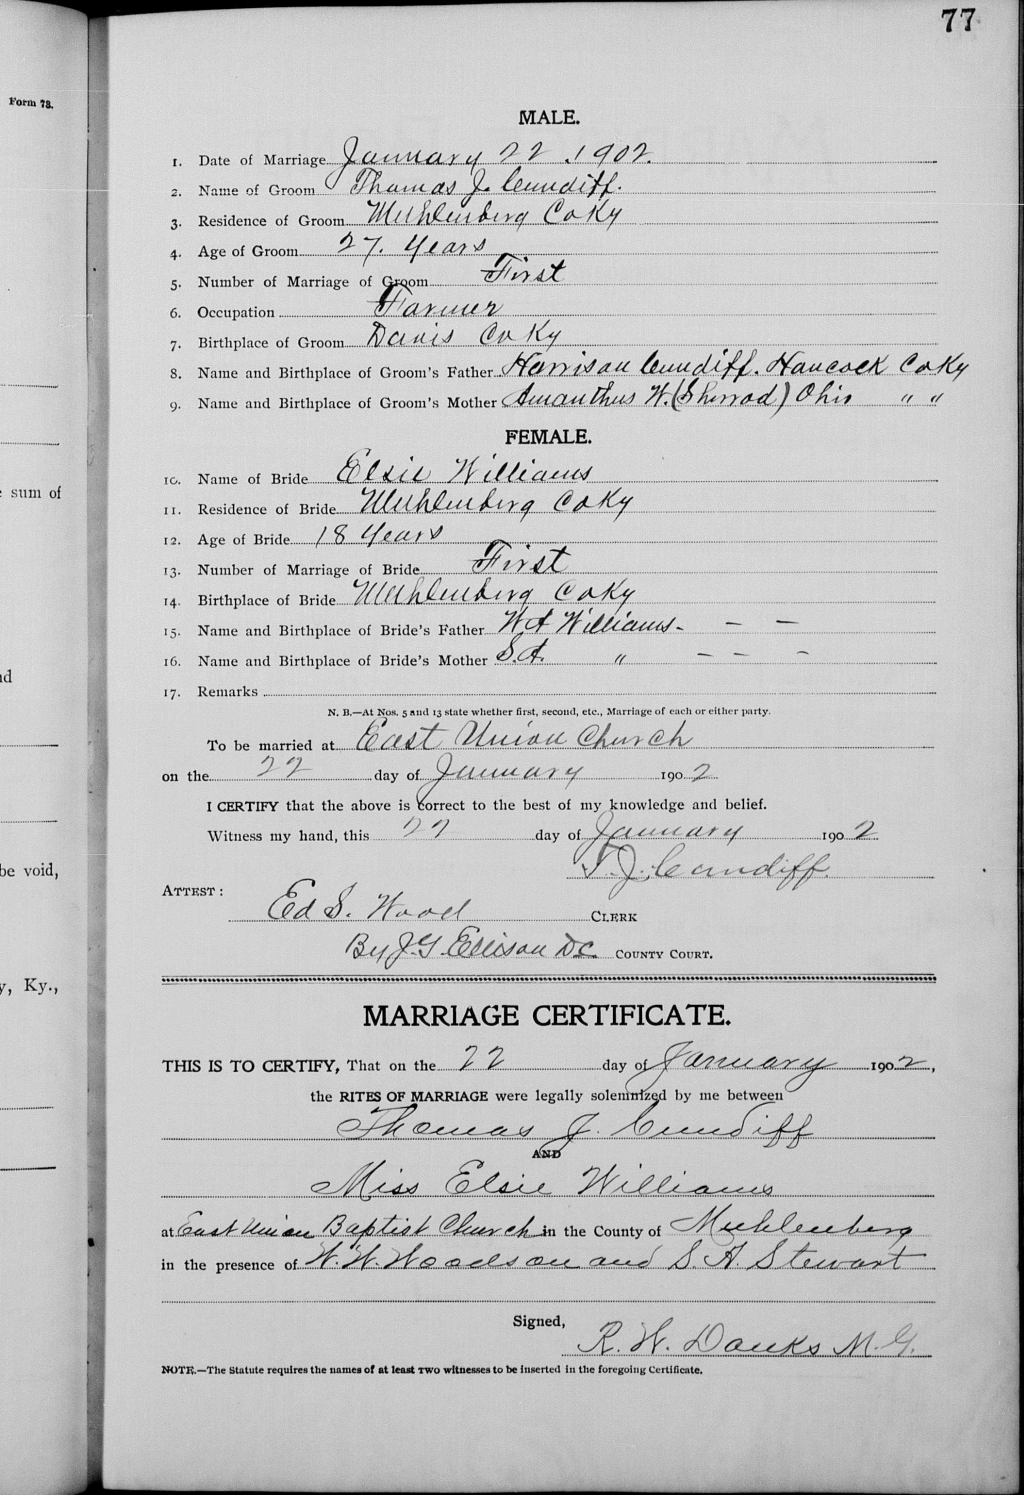 77
Form 78.
MALE.
1. Date of Marriage January 22, 1902.
2. Name of Groom Thomas J. Cundiff.
3. Residence of Groom Muhlenberg Co Ky
4. Age of Groom 27. Years
5. Number of Marriage of Groom First
6. Occupation Farmer
7. Birthplace of Groom Davis Co Ky
8. Name and Birthplace of Groom's Father Harrison Cundiff. Hancock Co Ky
9. Name and Birthplace of Groom's Mother Amanthus W. (Sherrod) Ohio " "
FEMALE.
10. Name of Bride Elsie Williams
11. Residence of Bride Muhlenberg Co Ky
12. Age of Bride 18 Years
13. Number of Marriage of Bride First
14. Birthplace of Bride Muhlenberg Co Ky
15. Name and Birthplace of Bride's Father W A Williams - — —
16. Name and Birthplace of Bride's Mother S. A. " — — —
17. Remarks
N. B.—At Nos. 5 and 13 state whether first, second, etc., Marriage of each or either party.
To be married at East Union Church
on the 22 day of January 1902
I CERTIFY that the above is correct to the best of my knowledge and belief.
Witness my hand, this 22 day of January 1902
T. J. Cundiff
ATTEST:
Ed S. Wood CLERK
By J. G. Ellison D C COUNTY COURT.
MARRIAGE CERTIFICATE.
THIS IS TO CERTIFY, That on the 22 day of January 1902,
the RITES OF MARRIAGE were legally solemnized by me between
Thomas J. Cundiff
AND
Miss Elsie Williams
at East Union Baptist Church in the County of Muhlenberg
in the presence of W. W. Woodson and S. A. Stewart
Signed,
R. W. Danks M. G.
NOTE.—The Statute requires the names of at least TWO witnesses to be inserted in the foregoing Certificate.
sum of
be void,
y, Ky.,